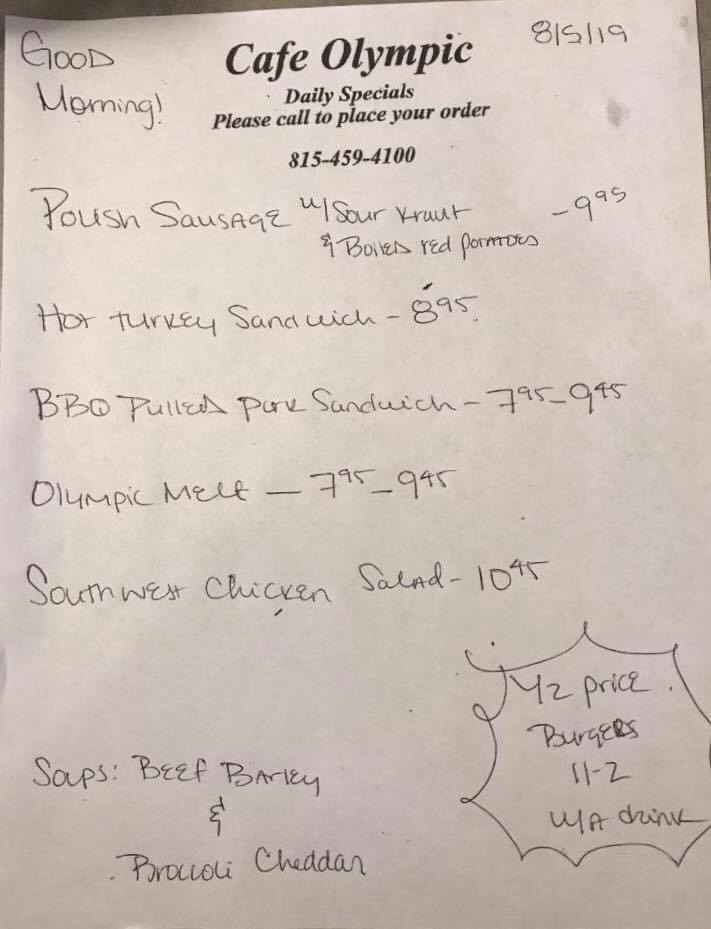 Good
Morning!
Cafe Olympic
8/5/19
Daily Specials
Please call to place your order
815-459-4100
Polish Sausage w/ Sour Kraut - 995
& Boiled red potatoes
Hot Turkey Sandwich - 895
BBQ Pulled Pork Sandwich - 795 - 945
Olympic Melt - 795 - 945
Southwest Chicken Salad - 1045
1/2 price
Burgers
11-2
w/a drink
Soups: Beef Barley
&
Broccoli Cheddar